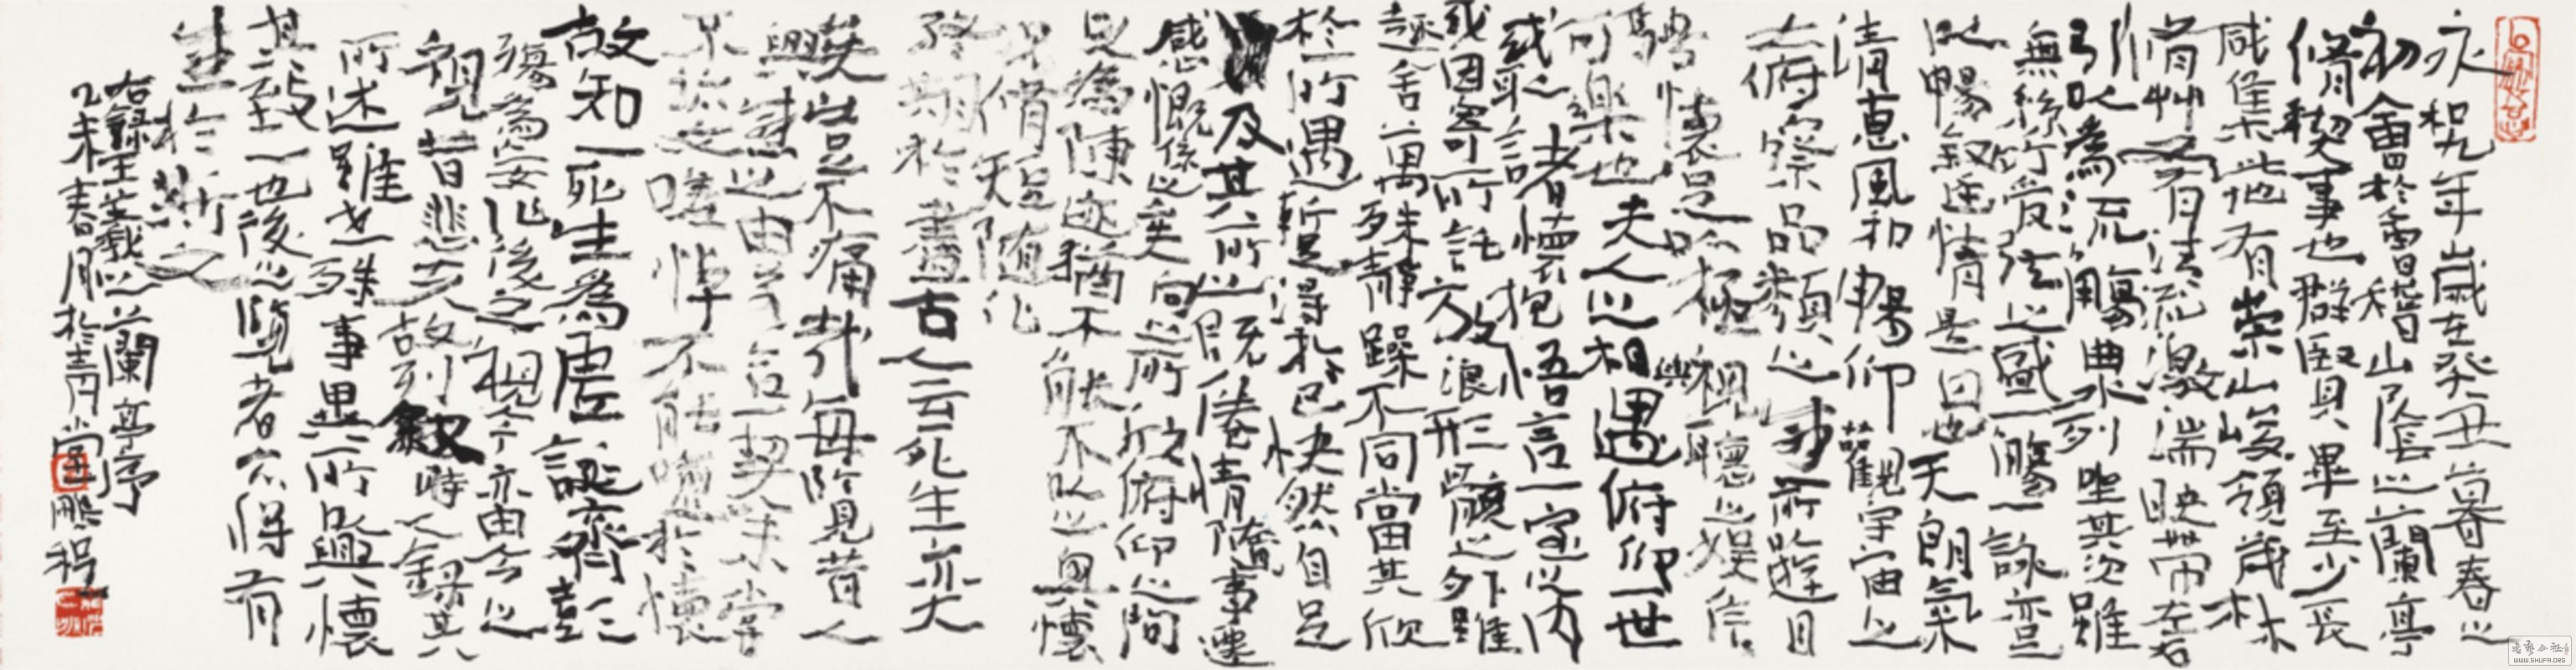 永和九年歲在癸丑暮春之
初會於會稽山陰之蘭亭
脩稧事也群賢畢至少長
咸集此地有崇山峻領茂林
脩竹又有清流激湍映帶左右
引以為流觴曲水列坐其次雖
無絲竹管弦之盛一觴一詠亦足
以暢敘幽情是日也天朗氣
清惠風和暢仰觀宇宙之
大俯察品類之盛所以遊目
騁懷足以極視聽之娛信
可樂也夫人之相與俯仰一世
或取諸懷抱悟言一室之內
或因寄所託放浪形骸之外雖
趣舍萬殊靜躁不同當其欣
於所遇暫得於己快然自足
及其所之既倦情隨事遷
感慨係之矣向之所欣俯仰之間
以為陳迹猶不能不以之興懷
況脩短隨化
終期於盡古人云死生亦大
矣豈不痛哉每攬昔人
興感之由若合一契未嘗
不臨文嗟悼不能喻之於懷
故知一死生為虛誕齊彭
殤為妄作後之視今亦由今之
視昔悲夫故列敘時人錄其
所述雖世殊事異所以興懷
其致一也後之覽者亦將有
感於斯文
右錄王羲之蘭亭序
乙未春月於青
WWW.SHUFA.ORG